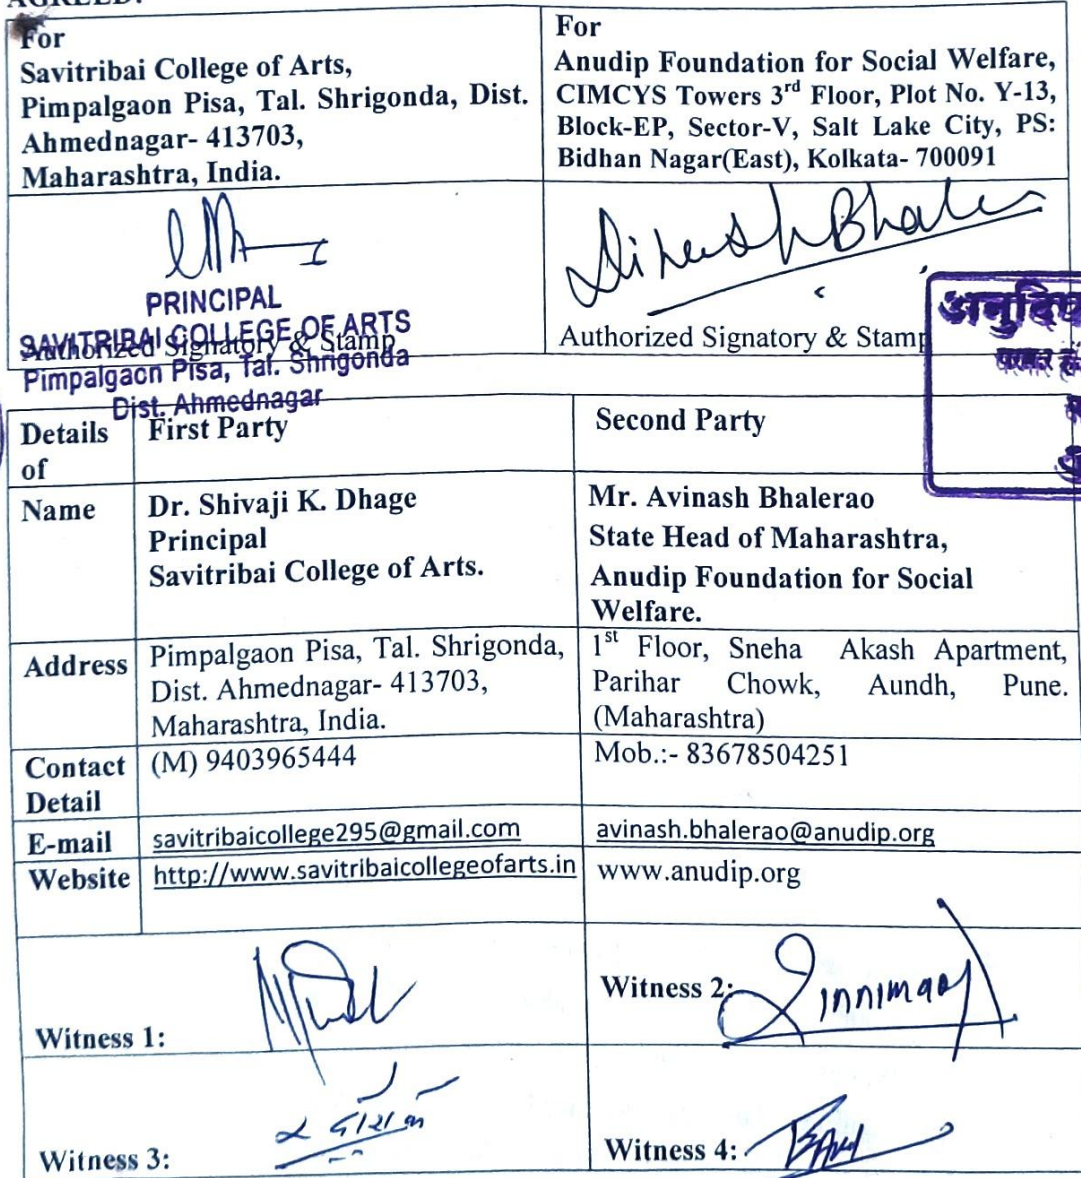 AGREED:
For
Savitribai College of Arts,
Pimpalgaon Pisa, Tal. Shrigonda, Dist.
Ahmednagar- 413703,
Maharashtra, India.
For
Anudip Foundation for Social Welfare,
CIMCYS Towers 3rd Floor, Plot No. Y-13,
Block-EP, Sector-V, Salt Lake City, PS:
Bidhan Nagar(East), Kolkata- 700091
PRINCIPAL
SAVITRIBAI COLLEGE OF ARTS
Authorized Signatory & Stamp
Pimpalgaon Pisa, Tal. Shrigonda
Dist. Ahmednagar
Authorized Signatory & Stamp
Details of
First Party
Second Party
Name
Dr. Shivaji K. Dhage
Principal
Savitribai College of Arts.
Mr. Avinash Bhalerao
State Head of Maharashtra,
Anudip Foundation for Social
Welfare.
Address
Pimpalgaon Pisa, Tal. Shrigonda,
Dist. Ahmednagar- 413703,
Maharashtra, India.
1st Floor, Sneha Akash Apartment,
Parihar Chowk, Aundh, Pune.
(Maharashtra)
Contact Detail
(M) 9403965444
Mob.:- 83678504251
E-mail
savitribaicollege295@gmail.com
avinash.bhalerao@anudip.org
Website
http://www.savitribaicollegeofarts.in
www.anudip.org
Witness 1:
Witness 2:
Witness 3:
Witness 4: